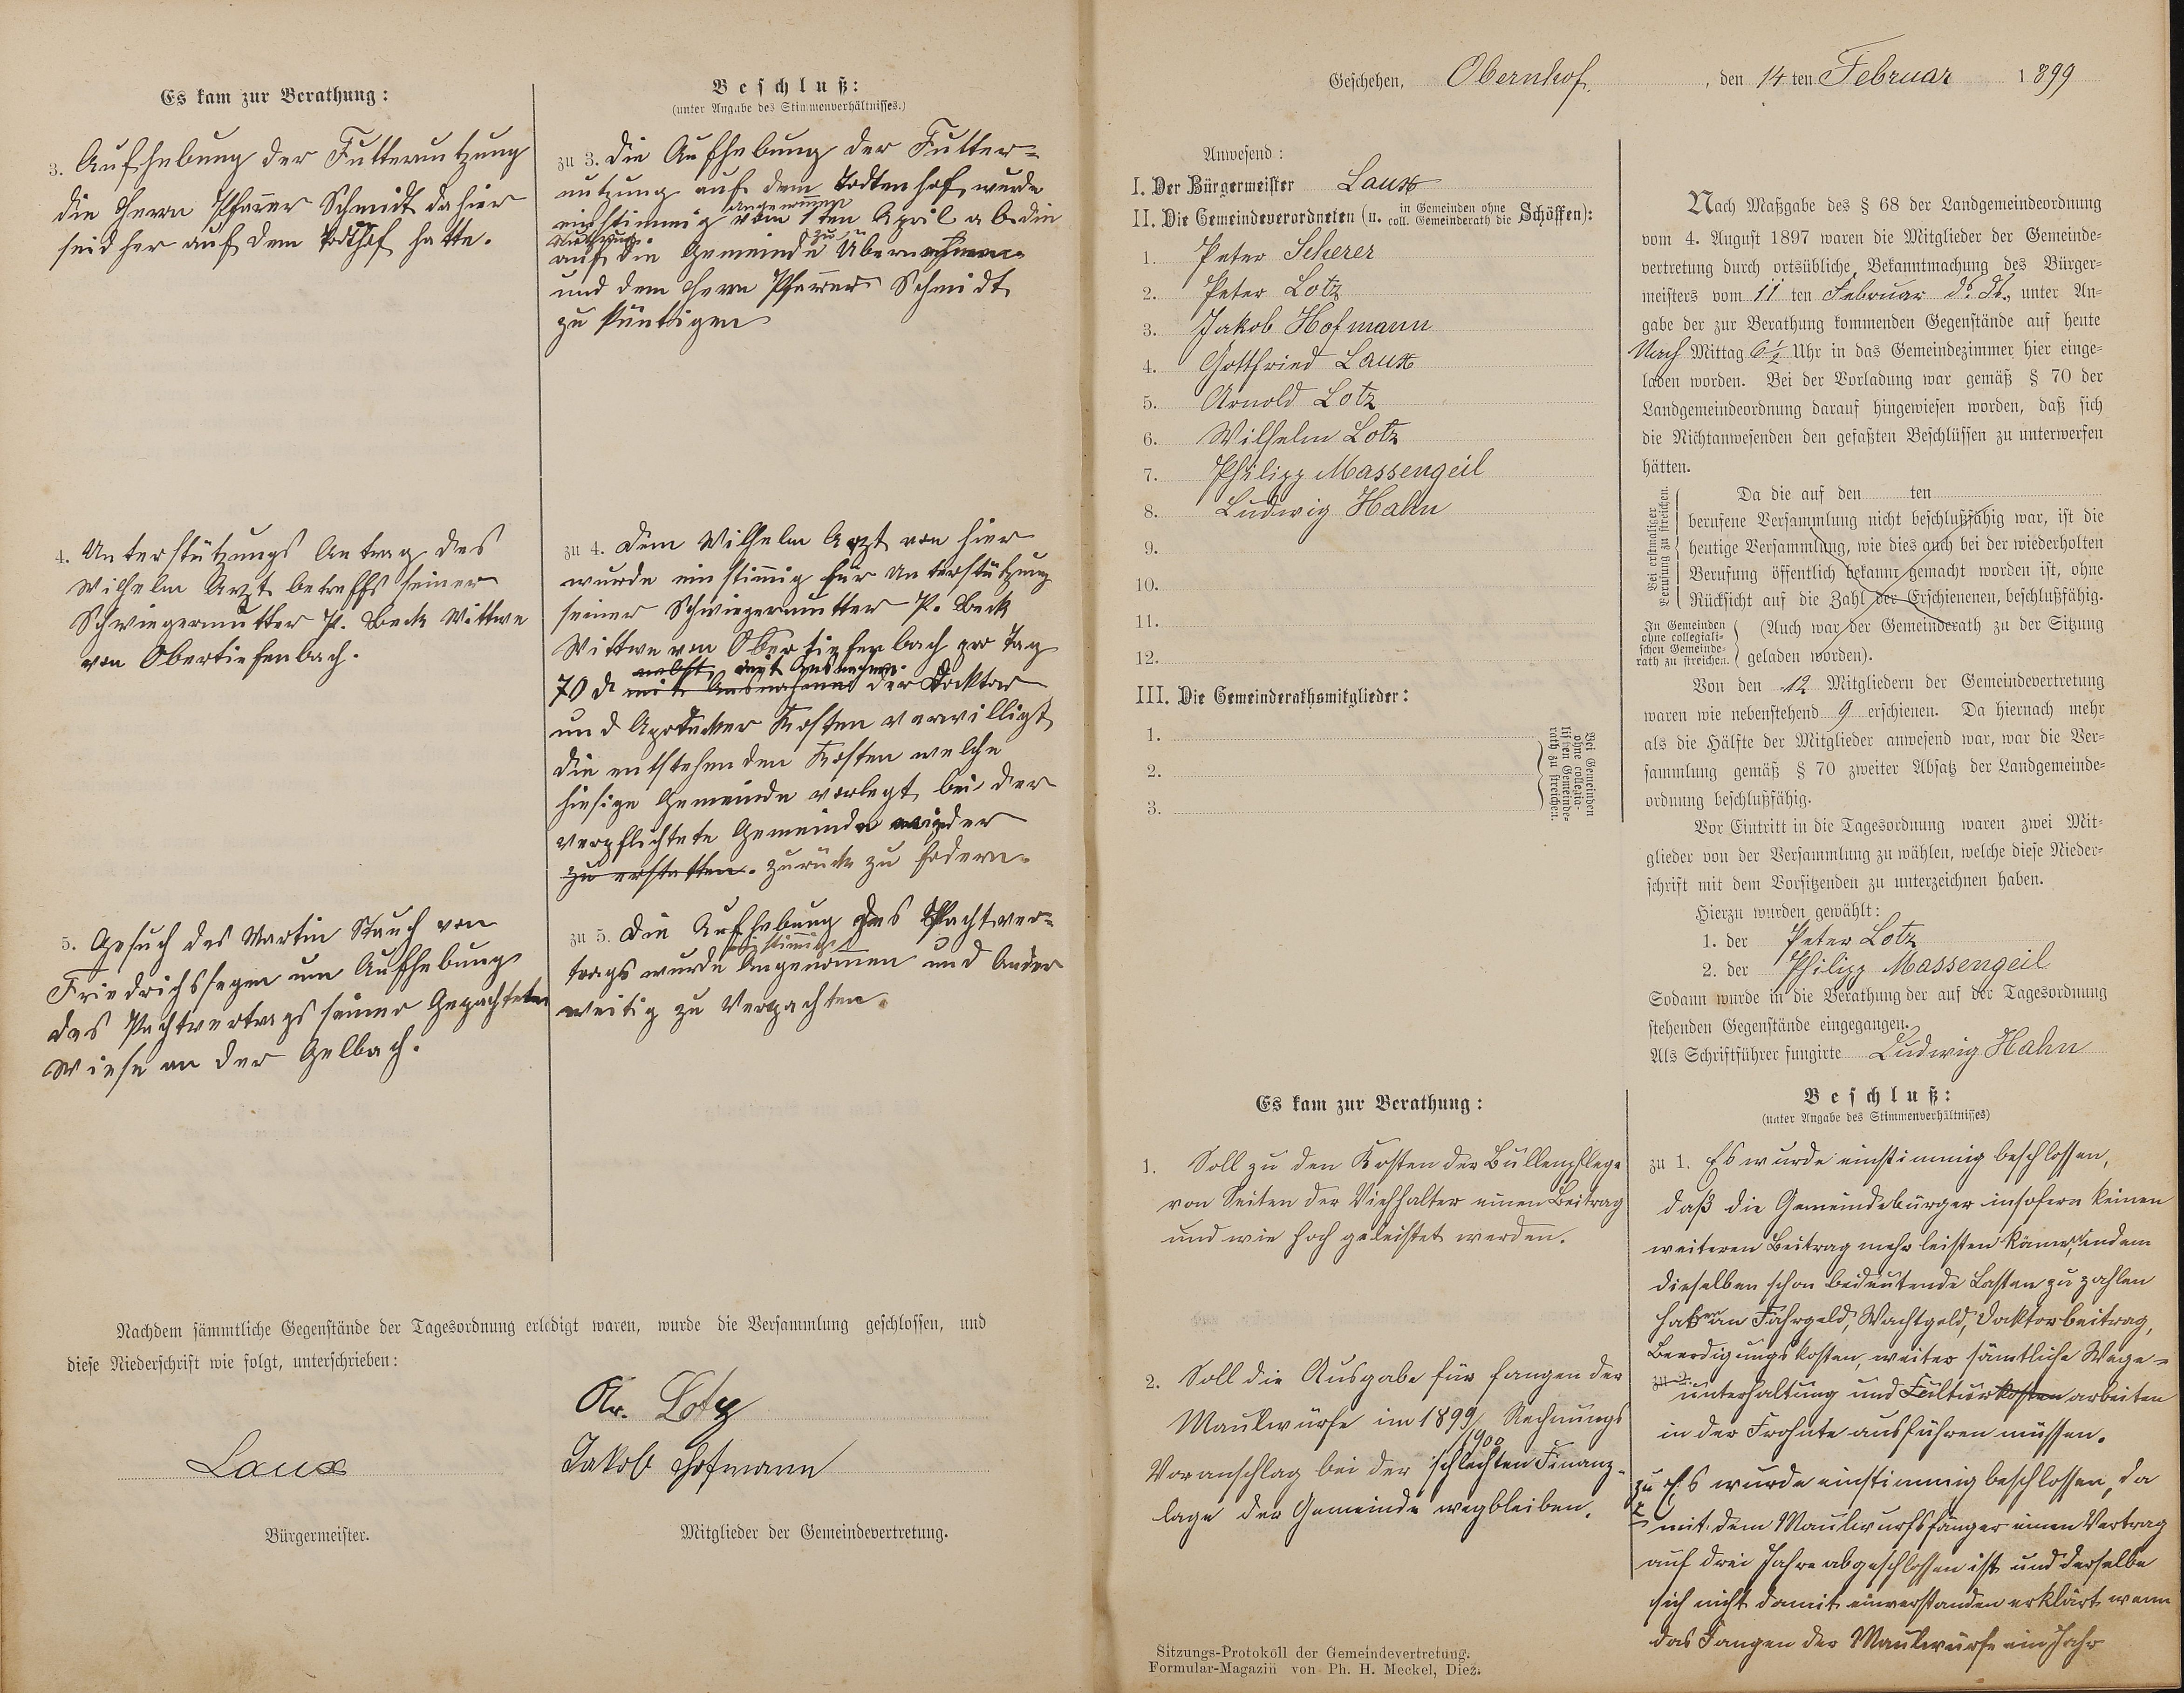 Es kam zur Berathung:
3. Aufhebung der Futternutzung
die Herrn Pfarrer Schmidt dahier
seid her auf dem Todthof hatte.
4. Unterstützungs Antrag des
Wilhelm Arzt betreffs seiner
Schwiegermutter P. Beck Wittwe
von Obertiefenbach.
5. Gesuch des Martin Stauch von
Friedrichssegen um Aufhebung
des Pachtvertrags seiner Gepachteten
Wiese an der Gelbach.
Beschluß:
(unter Angabe des Stimmenverhältnisses.)
zu 3. Die Aufhebung der Futter-
nutzung auf dem Todtenhof wurde
angenommen
einstimmig vom 1ten April ab die
Nutzung zu
auf die Gemeinde Übernehmen
und dem Herrn Pfarrer Schmidt
zu kündigen
zu 4. Dem Wilhelm Arzt von hier
wurde einstimmig für Unterstützung
seiner Schwiegermutter P. Beck
Wittwe von Obertiefenbach pro Tag
nebst mit Ausnahme
70 d mit Ausnahme der Docktor
und Apotecker Kosten verwilligt
die entstehenden Kosten welche
hiesige Gemeinde vorlegt, bei der
verpflichtete Gemeinde wieder
zu erstatten. zurück zu fodern.
zu 5. Die Aufhebung des Pachtver-
einstimmig
trags wurde Angenommen und Ander
weitig zu Verpachten.
Nachdem sämmtliche Gegenstände der Tagesordnung erledigt waren, wurde die Versammlung geschlossen, und
diese Niederschrift wie folgt, unterschrieben:
Laux
Bürgermeister.
Lotz
Jakob Hofmann
Mitglieder der Gemeindevertretung.
Geschehen, Obernhof, den 14 ten Februar 1899
Anwesend:
I. Der Bürgermeister Laux
II. Die Gemeindeverordneten (u. in Gemeinden ohne coll. Gemeinderath die Schöffen):
1. Peter Scherer
2. Peter Lotz
3. Jakob Hofmann
4. Gottfried Laux
5. Arnold Lotz
6. Wilhelm Lotz
7. Philipp Massengeil
8. Ludwig Hahn
9.
10.
11.
12.
III. Die Gemeinderathsmitglieder:
1.
2.
3.
Bei Gemeinden
ohne collegia-
lischen Gemeinde-
rath zu streichen.
Nach Maßgabe des § 68 der Landgemeindeordnung
vom 4. August 1897 waren die Mitglieder der Gemeinde-
vertretung durch ortsübliche Bekanntmachung des Bürger-
meisters vom 11 ten Februar ds. Js., unter An-
gabe der zur Berathung kommenden Gegenstände auf heute
Nach Mittag 6½ Uhr in das Gemeindezimmer hier einge-
laden worden. Bei der Vorladung war gemäß § 70 der
Landgemeindeordnung darauf hingewiesen worden, daß sich
die Nichtanwesenden den gefaßten Beschlüssen zu unterwerfen
hätten.
Bei erstmaliger
Berufung zu streichen.
Da die auf den ten
berufene Versammlung nicht beschlußfähig war, ist die
heutige Versammlung, wie dies auch bei der wiederholten
Berufung öffentlich bekannt gemacht worden ist, ohne
Rücksicht auf die Zahl der Erschienenen, beschlußfähig.
In Gemeinden
ohne collegiali-
schen Gemeinde-
rath zu streichen.
(Auch war der Gemeinderath zu der Sitzung
geladen worden).
Von den 12 Mitgliedern der Gemeindevertretung
waren wie nebenstehend 9 erschienen. Da hiernach mehr
als die Hälfte der Mitglieder anwesend war, war die Ver-
sammlung gemäß § 70 zweiter Absatz der Landgemeinde-
ordnung beschlußfähig.
Vor Eintritt in die Tagesordnung waren zwei Mit-
glieder von der Versammlung zu wählen, welche diese Nieder-
schrift mit dem Vorsitzenden zu unterzeichnen haben.
Hierzu wurden gewählt:
1. der Peter Lotz
2. der Philipp Massengeil
Sodann wurde in die Berathung der auf der Tagesordnung
stehenden Gegenstände eingegangen.
Als Schriftführer fungirte Ludwig Hahn
Es kam zur Berathung:
1. Soll zu den Kosten der Bullenpflege
von Seiten der Viehhalter einen Beitrag
und wie hoch geleistet werden.
2. Soll die Ausgabe für fangen der
Maulwürfe im 1899/1900 Rechnungs
Voranschlag bei der schlechten Finanz-
lage der Gemeinde wegbleiben.
Beschluß:
(unter Angabe des Stimmenverhältnisses)
zu 1. Es wurde einstimmig beschlossen,
daß die Gemeindebürger insofern keinen
weiteren Beitrag mehr leisten können, indem
dieselben schon bedeutende Lasten zu zahlen
haben an Fahrgeld, Wachtgeld, Doktorbeitrag,
Beerdigungskosten, weiter sämtliche Wege-
zu 2.
unterhaltung und Culturkosten arbeiten
in der Frohnte ausführen müssen.
zu 2 Es wurde einstimmig beschlossen, da
mit dem Maulwurfsfänger einen Vertrag
auf drei Jahre abgeschlossen ist und derselbe
sich nicht damit einverstanden erklärt wenn
das Fangen der Maulwürfe ein Jahr
Sitzungs-Protokoll der Gemeindevertretung.
Formular-Magazin von Ph. H. Meckel, Diez.